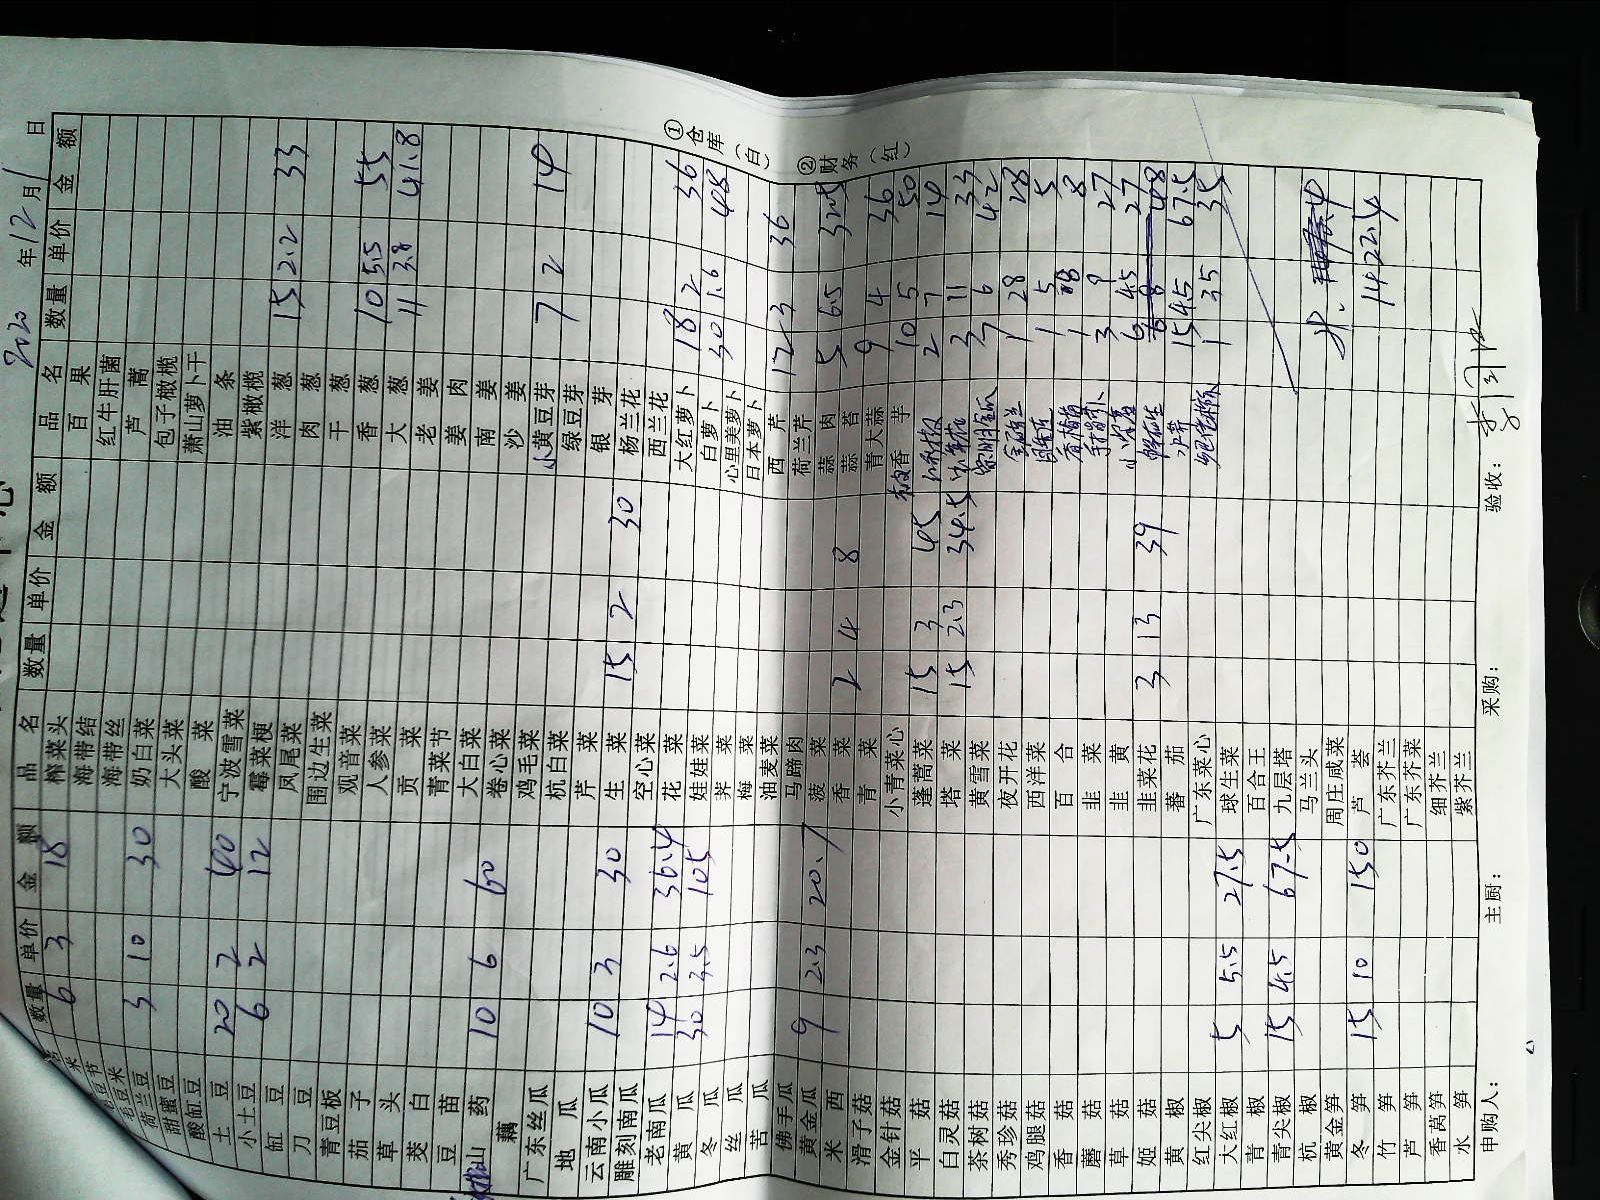 2020年12月1日
品名 数量 单价 金额
米 6 3 18
毛豆米
荷兰豆 3 10 30
甜蜜豆
酸缸豆
土豆 20 2 40
小土豆 6 2 12
缸豆
刀豆
青豆板
茄子
草头
茭白
豆苗
山药 10 6 60
藕
广东丝瓜
地瓜
云南小瓜 10 3 30
雕刻南瓜
老南瓜 14 2.6 36.4
黄瓜 30 3.5 105
冬瓜
丝瓜
苦瓜
佛手瓜
黄金瓜 9 2.3 20.7
西米
滑子菇
金针菇
平菇
白灵菇
茶树菇
秀珍菇
鸡腿菇
香菇
蘑菇
草菇
姬菇
黄椒
红尖椒
大红椒 5 5.5 27.5
青椒
青尖椒 15 4.5 67.5
杭椒
黄金笋
冬笋 15 10 150
竹笋
芦笋
香莴笋
水笋
品名 数量 单价 金额
榨菜头
海带结
海带丝
奶白菜
大头菜
酸菜
宁波雪菜
霉菜梗
凤尾菜
围边生菜
观音菜
人参菜
贡菜
青菜节
大白菜
卷心菜
鸡毛菜
杭白菜
芹菜
生菜 15 2 30
空心菜
花菜
娃娃菜
荠菜
梅菜
油麦菜
马蹄肉
菠菜
香菜 2 4 8
青菜
小青菜心
蓬蒿菜 15 3 45
塔菜 15 2.3 34.5
黄雪菜
夜开花
西洋菜
百合
韭菜
韭黄
韭菜花 3 13 39
蕃茄
广东菜心
球生菜
百合王
九层塔
马兰头
周庄咸菜
芦荟
广东芥兰
广东芥菜
细芥兰
紫芥兰
品名 数量 单价 金额
百果
红牛肝菌
芦蒿
包子橄榄
萧山萝卜干
油条
紫橄榄
洋葱 15 2.2 33
肉葱
干葱
香葱 10 5.5 55
大葱 11 3.8 41.8
老姜
姜肉
南姜
沙姜
小黄豆芽 7 2 14
绿豆芽
银芽
杨兰花
西兰花
大红萝卜 18 2 36
白萝卜 30 1.6 48
心里美萝卜
日本萝卜
西芹 12 3 36
荷兰芹
蒜肉 5 6.5 32.5
蒜苔
青大蒜 9 4 36
香芋 10 5 50
2 7 14
3 11 33
7 6 42
1 28 28
1 5 5
1 8 8
3 9 27
6 4.5 27
6 8 48
15 4.5 67.5
1 35 35
1422.4
①仓库(白)
②财务(红)
申购人:
主厨:
采购:
验收: